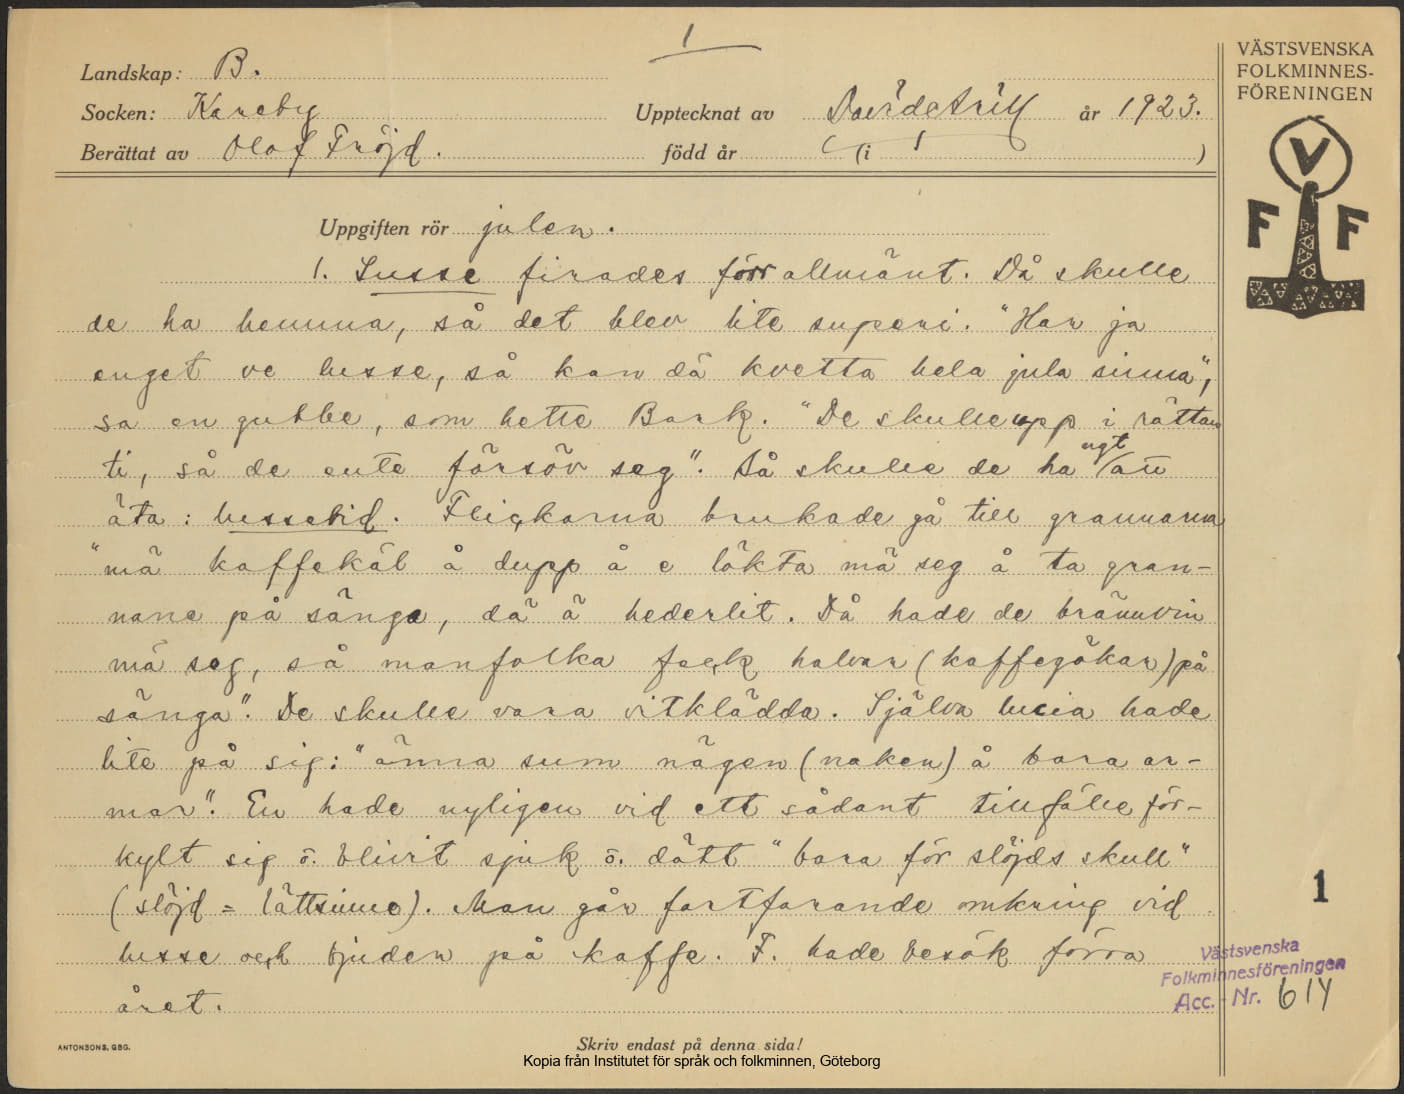 1
Landskap: B.
Socken: Kareby
Upptecknat av David Arill år 1923.
Berättat av Olof Fröjd.
född år (i )
VÄSTSVENSKA
FOLKMINNES-
FÖRENINGEN
V
F F
Uppgiften rör julen.
1. Lusse firades förr allmänt. Då skulle
de ha hemma, så det blev lite superi. "Har ja
enget ve lusse, så kan dä kvetta hela jula sinna",
sa en gubbe, som hette Bark. "De skulle upp i rättan
ti, så de ente försöv seg". Då skulle de ha ngt att
äta: lussebid. Flickorna brukade gå till grannarna
"mä kaffekäl å dupp å e lökta mä seg å ta gran-
nane på sänga, dä ä hederlit. Då hade de brännvin
mä seg, så manfolka fack halvar (kaffegökar) på
sänga". De skulle vara vitklädda. Själva lucia hade
lite på sig: "änna sum nägen (naken) å bara ar-
mar". En hade nyligen vid ett sådant tillfälle för-
kylt sig o. blivit sjuk o. dött "bara för slöjds skull"
(slöjd = lättsinne). Man går fortfarande omkring vid
lusse och bjuder på kaffe. F. hade besök förra
året.
1
Västsvenska
Folkminnesföreningen
Acc. - Nr. 614
ANTONSONS, GBG.
Skriv endast på denna sida!
Kopia från Institutet för språk och folkminnen, Göteborg